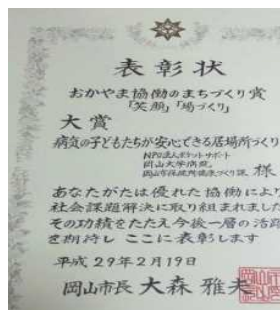 表彰状
おかやま協働のまちづくり賞
「笑顔」「場づくり」
大賞
病気の子どもたちが安心できる居場所づくり
NPO法人ポケットサポート
岡山大学病院
岡山市保健所健康づくり課 様
あなたがたは優れた協働により
社会課題解決に取り組まれました
その功績をたたえ今後一層の活躍
を期待し ここに表彰します
平成29年2月19日
岡山市長 大森 雅夫